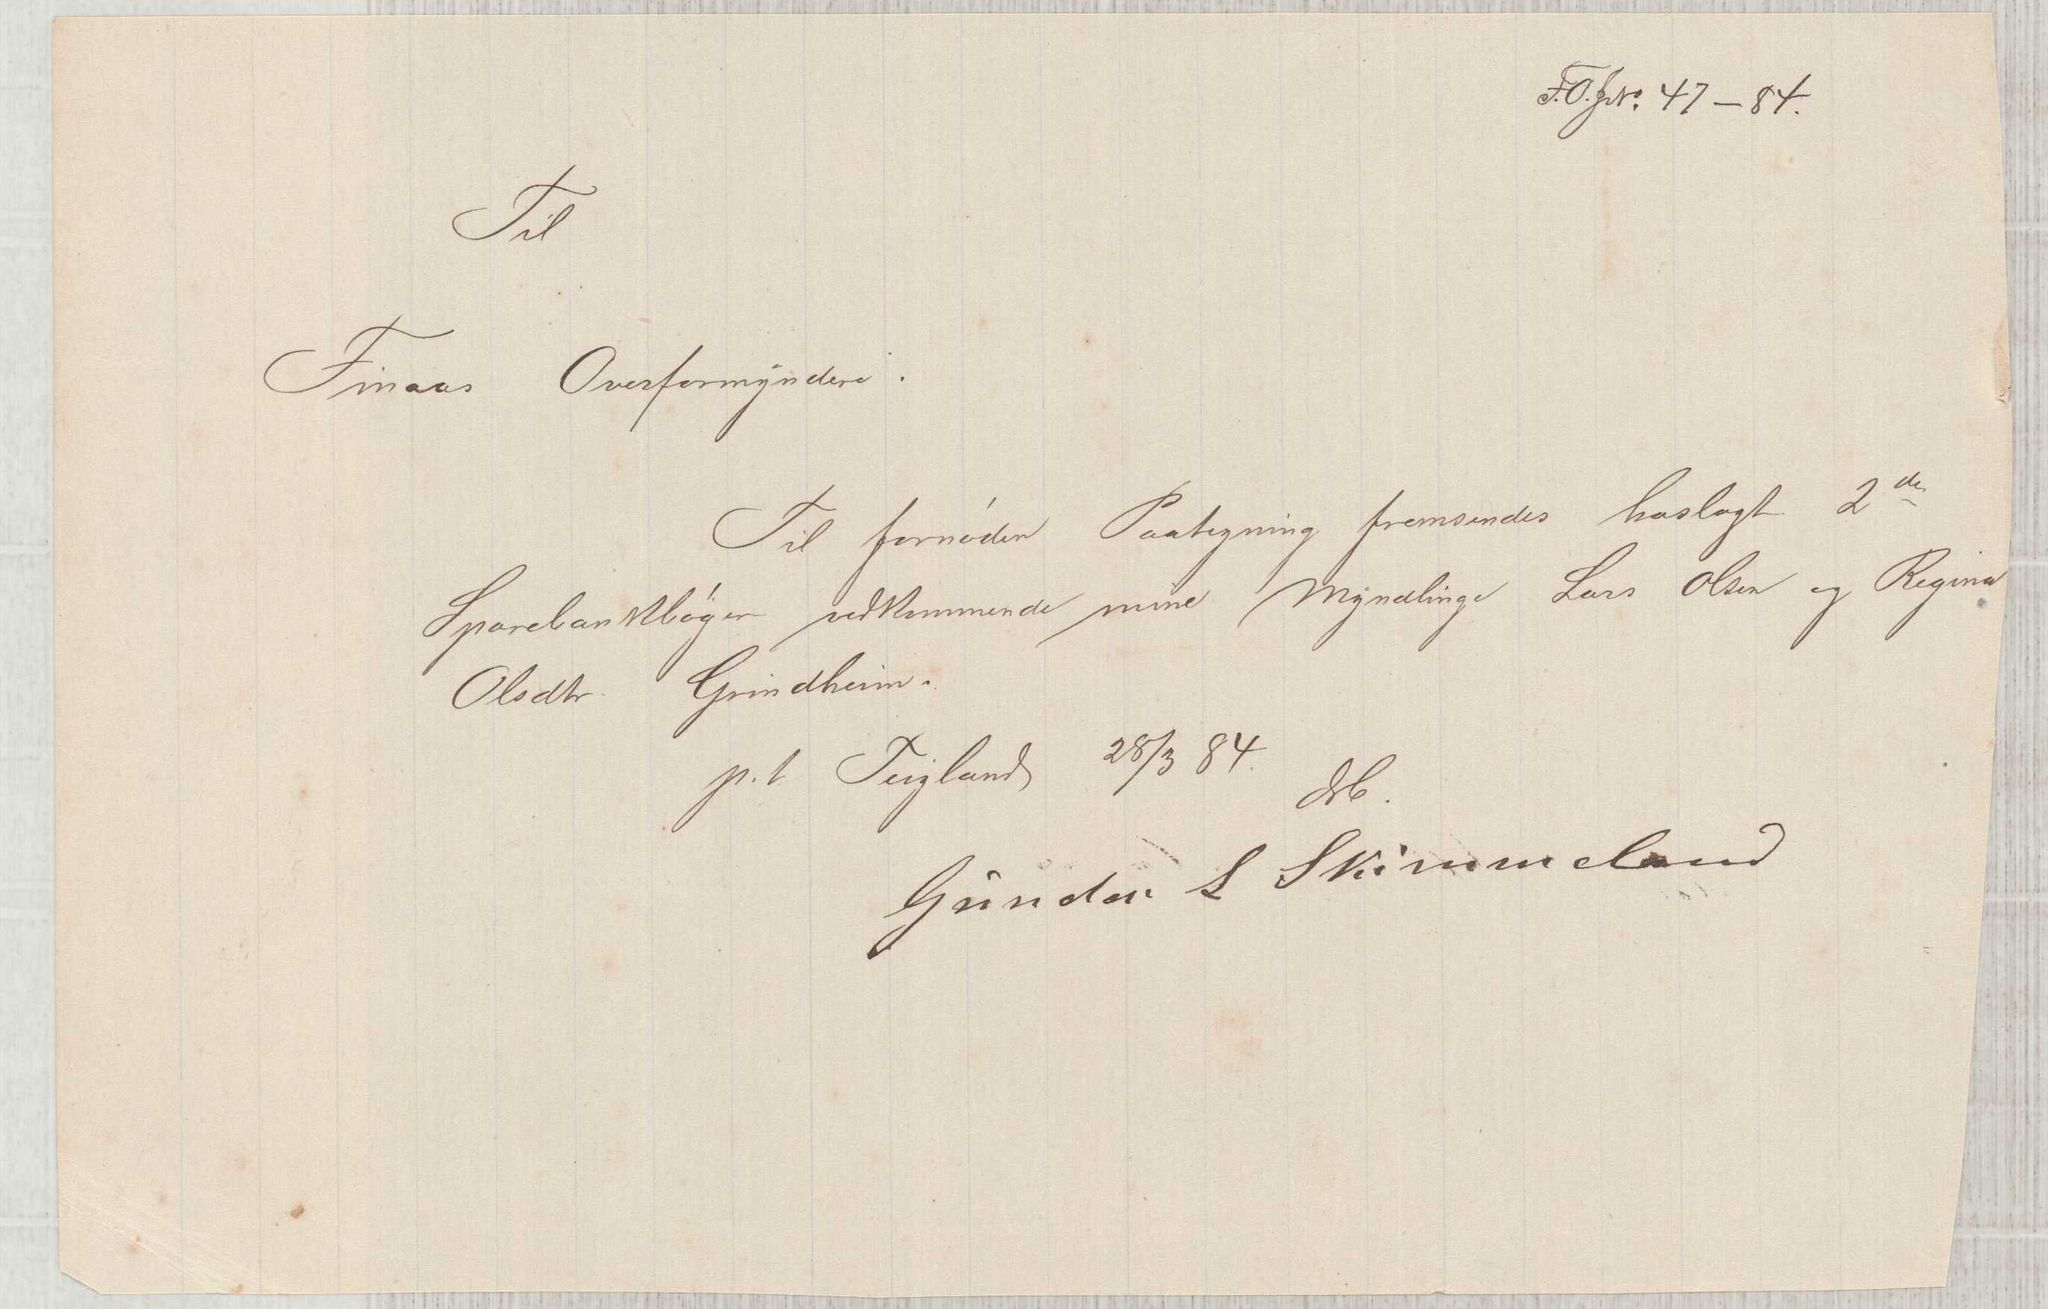 F.O.JNo. 47-84.
Til
Finaas Overformynderi.
Til fornöden Paategning fremsendes hoslagt 2de
Sparebankbøger vedkommende mine Myndlinge Lars Olsen og Regina
Olsdtr. Grindheim.
p.t. Teigland 28/3 84.
Gunder L Skimmeland